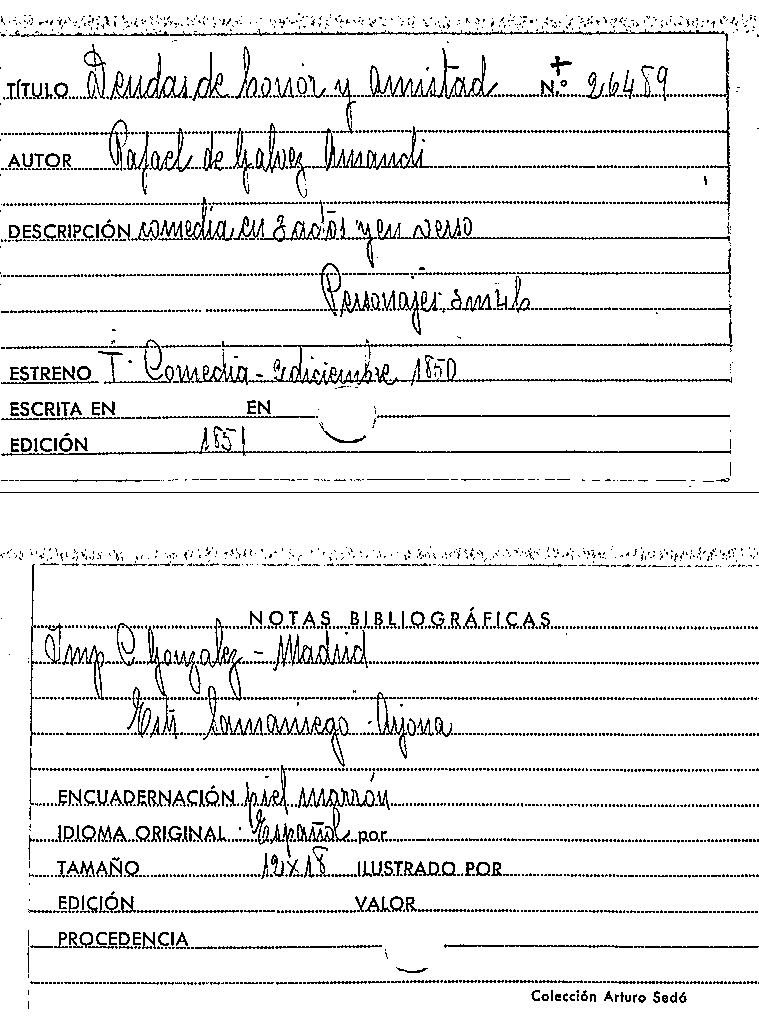 TÍTULO Deudas de honor y amistad N.º 26489
AUTOR Rafael de Galvez Amandi
DESCRIPCIÓN comedia en 3 actos y en verso
Personajes: 3m 4h
ESTRENO T. Comedia - diciembre 1850
ESCRITA EN EN
EDICIÓN 1851
NOTAS BIBLIOGRÁFICAS
Imp C. Gonzalez - Madrid
Estr Samaniego - Arjona
ENCUADERNACIÓN piel marrón
IDIOMA ORIGINAL Español por
TAMAÑO 12x18 ILUSTRADO POR
EDICIÓN VALOR
PROCEDENCIA
Colección Arturo Sedó